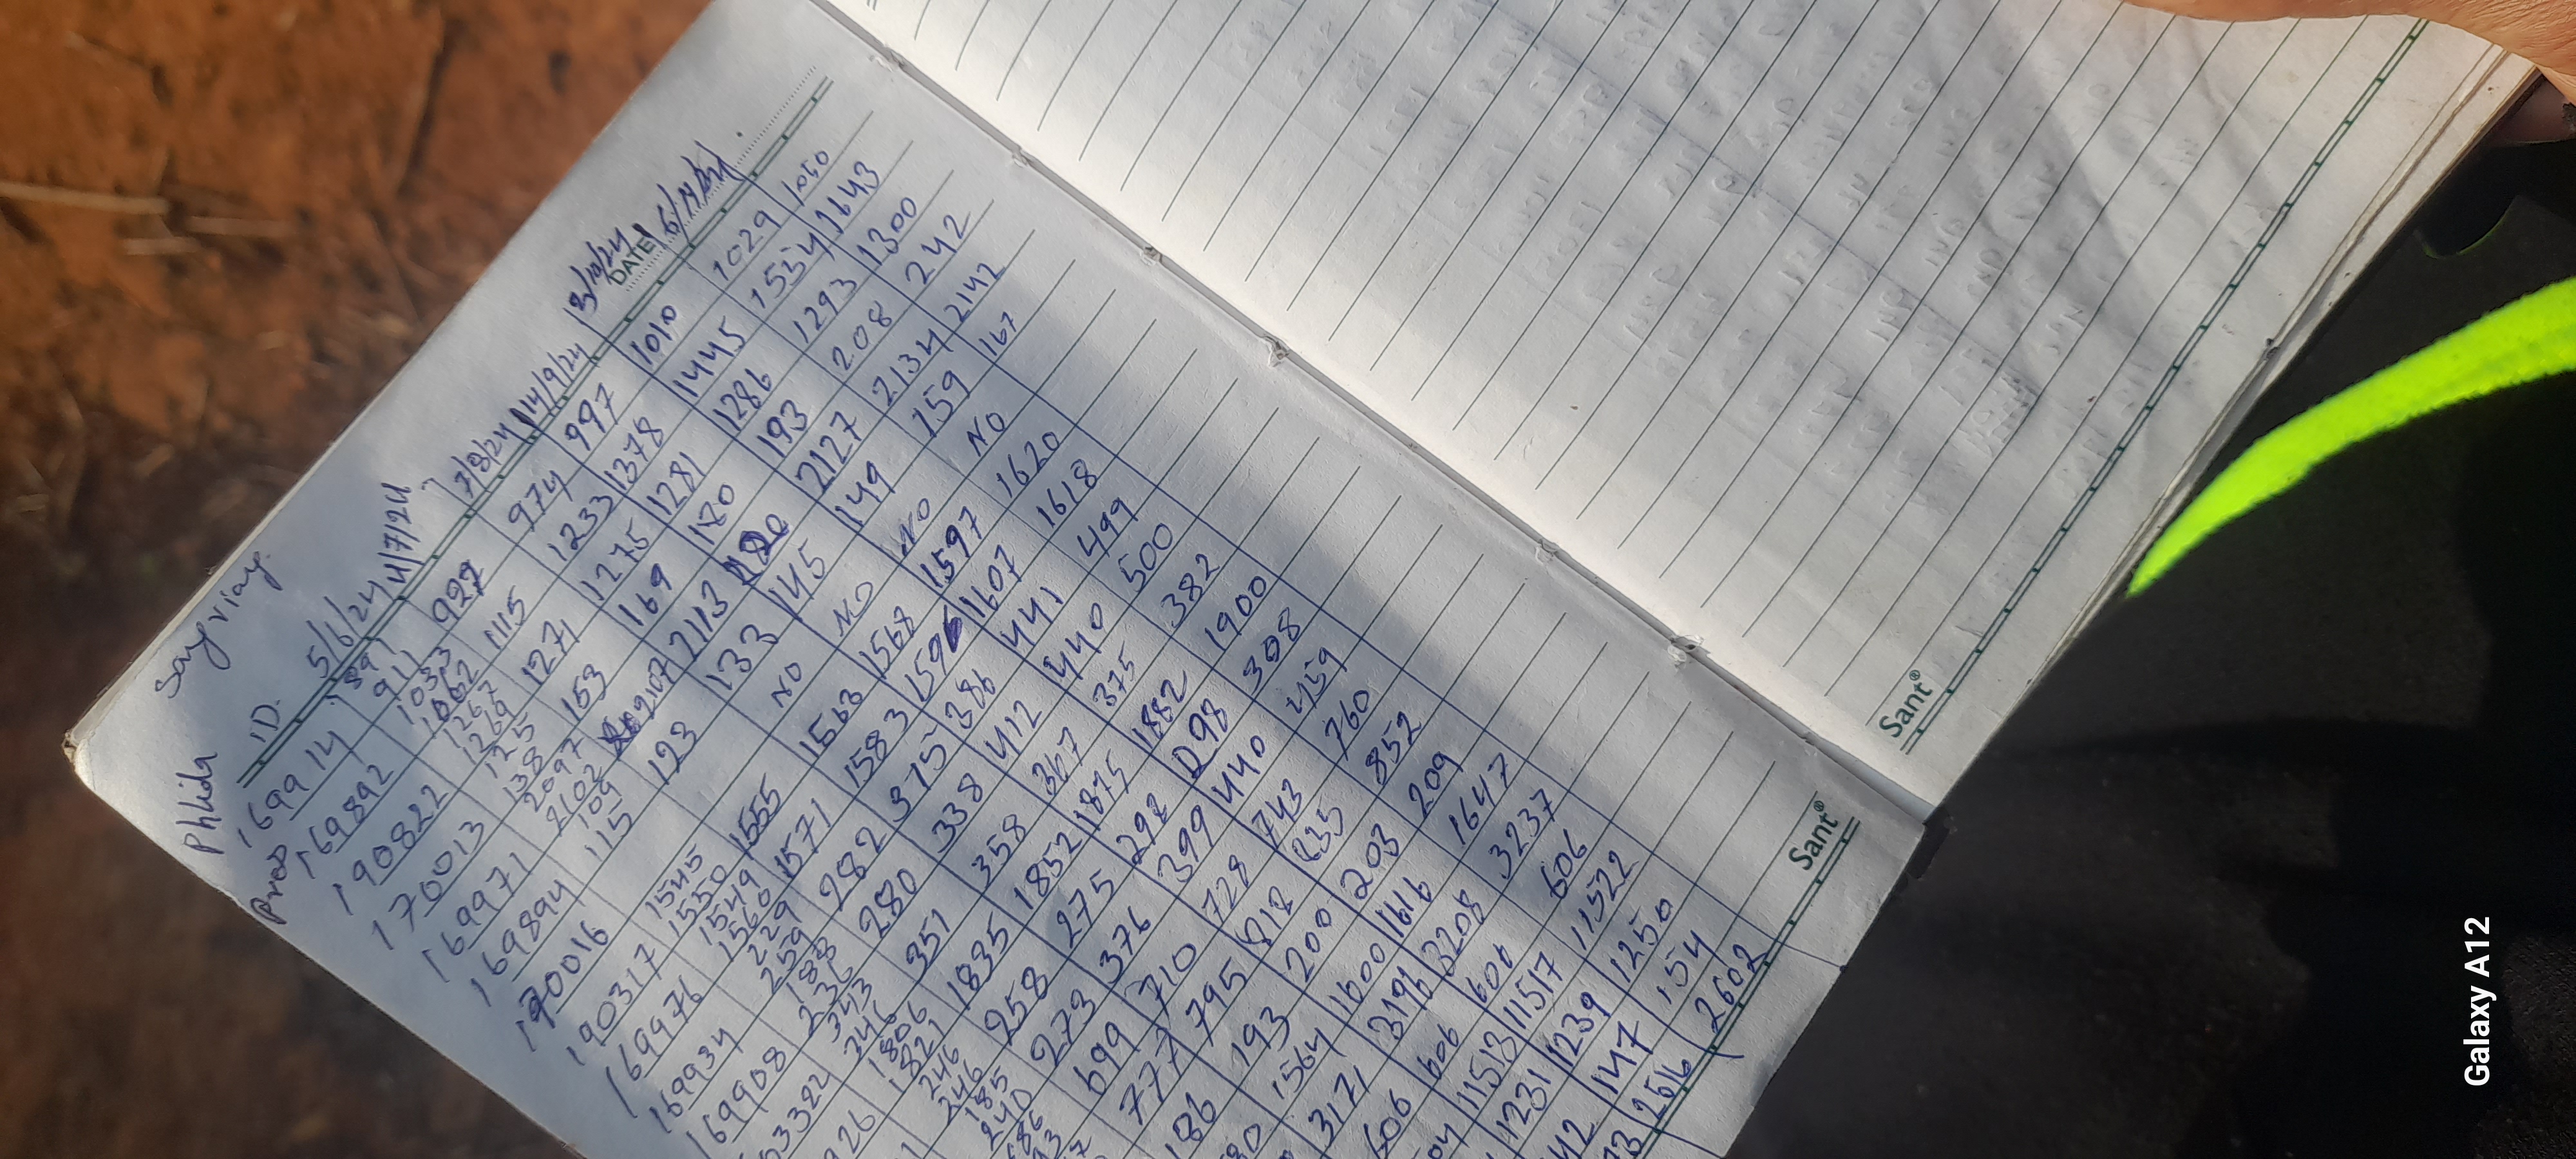 Phlida
Prod
ID 5/6/24 4/7/24 7/8/24 14/9/24 3/10/24 DATE 16/11/24
169914 891 911 927 974 997 1010 1029 1050
169892 1033 1062 1115 1233 1378 1445 1554 1643
190822 1267 1269 1271 1275 1281 1286 1293 1300
170013 125 138 153 169 180 193 208 242
169971 2097 2102 2107 2113 2127 2134 2142
169894 109 115 123 133 145 149 159 167
190016 NO NO NO NO
190317 1545 1550 1555 1563 1568 1597 1620
169976 1549 1560 1571 1583 1596 1607 1618
169934 229 259 282 315 386 441 499
169908 188 236 280 338 412 440 500
343 346 351 358 367 375 382
1806 1821 1835 1852 1875 1882 1900
246 246 258 275 292 298 308
185 240 273 376 399 440 459
699 710 728 743 760
777 795 812 835 852
186 193 200 203 209
1564 1600 1616 1647
3171 3196 3208 3237
606 606 606 606
11513 11517 11522
1231 1239 1250
147 154
2516 2602
Sant®
Sant®
Galaxy A12